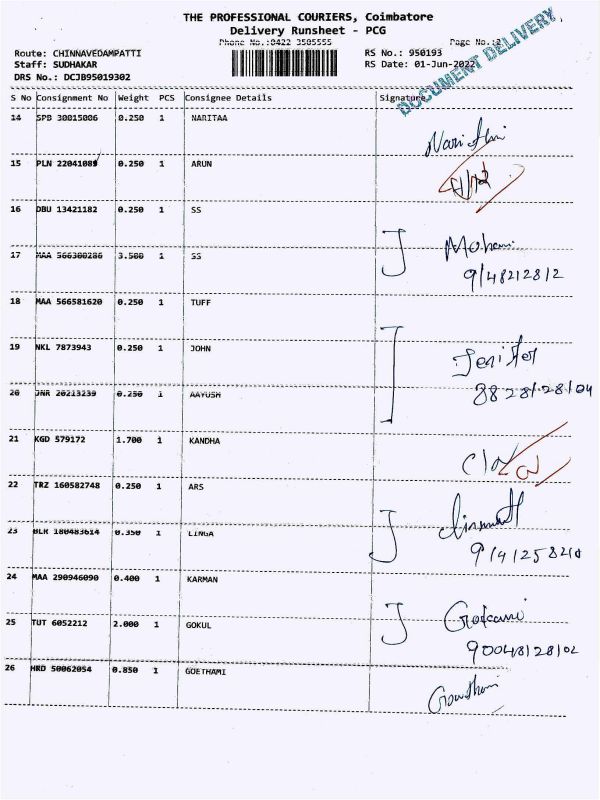 THE PROFESSIONAL COURIERS, Coimbatore
Delivery Runsheet - PCG
Phone No.:0422 3505555
Page No.:2
Route: CHINNAVEDAMPATTI
RS No.: 950193
Staff: SUDHAKAR
RS Date: 01-Jun-2022
DRS No.: DCJB95019302
DOCUMENT DELIVERY
S No Consignment No Weight PCS Consignee Details Signature
14 SPB 30015006 0.250 1 NARITAA
15 PLN 22041089 0.250 1 ARUN
16 DBU 13421182 0.250 1 SS
17 MAA 566300286 3.500 1 SS
Mohani
9148212812
18 MAA 566581620 0.250 1 TUFF
19 NKL 7873943 0.250 1 JOHN
Jenifer
20 JNR 20213239 0.250 1 AAYUSH
21 KGD 579172 1.700 1 KANDHA
22 TRZ 160582748 0.250 1 ARS
23 BLR 180483614 0.350 1 LINGA
24 MAA 290946090 0.400 1 KARMAN
25 TUT 6052212 2.000 1 GOKUL
26 HRD 50062054 0.850 1 GOETHAMI
Gowthami